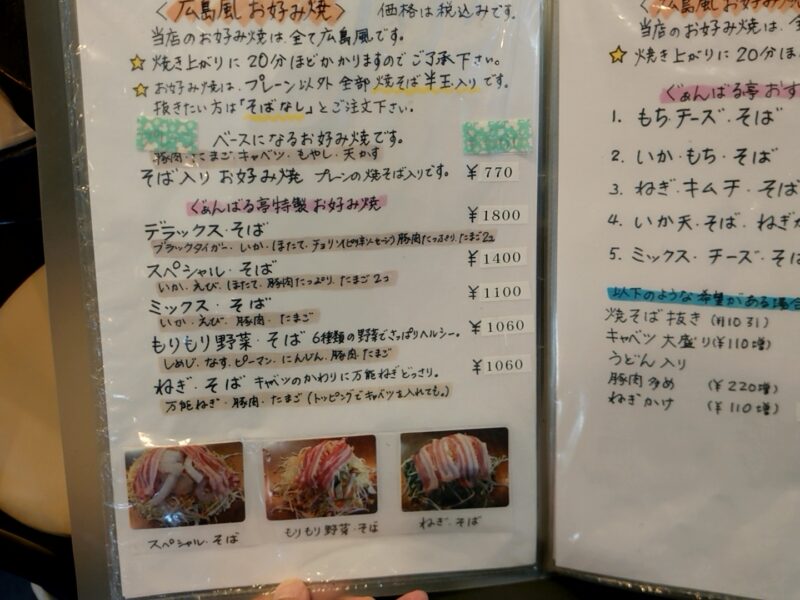 〈広島風 お好み焼〉 価格は税込みです。
当店のお好み焼は、全て広島風です。
☆ 焼き上がりに20分ほどかかりますのでご了承下さい。
☆ お好み焼は、プレーン以外 全部 焼そば半玉入りです。
抜きたい方は「そばなし」とご注文下さい。
ベースになるお好み焼です。
豚肉・たまご・キャベツ・もやし・天かす
そば入り お好み焼 プレーンの焼そば入りです。 ¥770
ぐぁんばる亭特製お好み焼
デラックス・そば ¥1800
ブラックタイガー・いか・ほたて・チョリソ(ピリ辛ソーセージ)豚肉たっぷり、たまご2コ
スペシャル・そば ¥1400
いか・えび・ほたて・豚肉たっぷり・たまご2コ
ミックス・そば ¥1100
いか・えび・豚肉・たまご
もりもり野菜・そば 6種類の野菜でさっぱりヘルシー。 ¥1060
しめじ・なす・ピーマン・にんじん・豚肉・たまご
ねぎ・そば キャベツのかわりに万能ねぎどっさり。 ¥1060
万能ねぎ・豚肉・たまご(トッピングでキャベツを入れても。)
スペシャル・そば
もりもり野菜・そば
ねぎ・そば
〈広島風 お好み
当店のお好み焼は、全
☆ 焼き上がりに20分ほ
ぐぁんばる亭おす
1. もち・チーズ・そば
2. いか・もち・そば
3. ねぎ・キムチ・そば
4. いか天・そば・ねぎ
5. ミックス・チーズ・そば
以下のような希望がある場合
焼そば抜き
キャベツ大盛り(¥110増)
うどん入り
豚肉多め (¥220増)
ねぎかけ (¥110増)